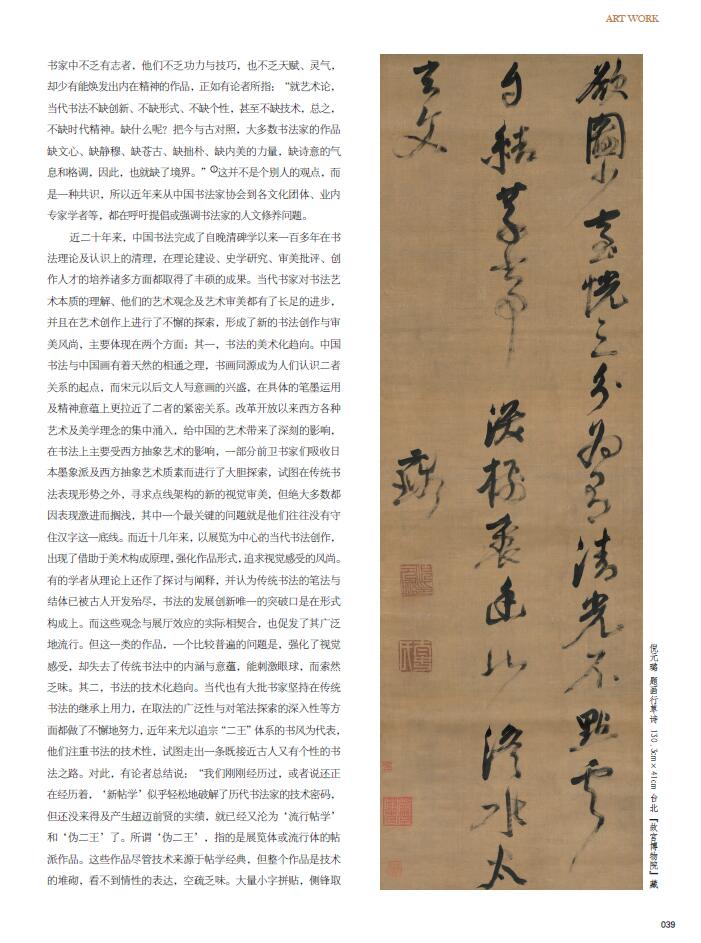 ART WORK
书家中不乏有志者，他们不乏功力与技巧，也不乏天赋、灵气，
却少有能焕发出内在精神的作品，正如有论者所指：“就艺术论，
当代书法不缺创新、不缺形式、不缺个性，甚至不缺技术，总之，
不缺时代精神。缺什么呢？把今与古对照，大多数书法家的作品
缺文心、缺静穆、缺苍古、缺拙朴、缺内美的力量，缺诗意的气
息和格调，因此，也就缺了境界。”①这并不是个别人的观点，而
是一种共识，所以近年来从中国书法家协会到各文化团体、业内
专家学者等，都在呼吁提倡或强调书法家的人文修养问题。
近二十年来，中国书法完成了自晚清碑学以来一百多年在书
法理论及认识上的清理，在理论建设、史学研究、审美批评、创
作人才的培养诸多方面都取得了丰硕的成果。当代书家对书法艺
术本质的理解、他们的艺术观念及艺术审美都有了长足的进步，
并且在艺术创作上进行了不懈的探索，形成了新的书法创作与审
美风尚，主要体现在两个方面：其一，书法的美术化趋向。中国
书法与中国画有着天然的相通之理，书画同源成为人们认识二者
关系的起点，而宋元以后文人写意画的兴盛，在具体的笔墨运用
及精神意蕴上更拉近了二者的紧密关系。改革开放以来西方各种
艺术及美学理念的集中涌入，给中国的艺术带来了深刻的影响，
在书法上主要受西方抽象艺术的影响，一部分前卫书家们吸收日
本墨象派及西方抽象艺术质素而进行了大胆探索，试图在传统书
法表现形势之外，寻求点线架构的新的视觉审美，但绝大多数都
因表现激进而搁浅，其中一个最关键的问题就是他们往往没有守
住汉字这一底线。而近十几年来，以展览为中心的当代书法创作，
出现了借助于美术构成原理，强化作品形式，追求视觉感受的风尚。
有的学者从理论上还作了探讨与阐释，并认为传统书法的笔法与
结体已被古人开发殆尽，书法的发展创新唯一的突破口是在形式
构成上。而这些观念与展厅效应的实际相契合，也促发了其广泛
地流行。但这一类的作品，一个比较普遍的问题是，强化了视觉
感受，却失去了传统书法中的内涵与意蕴，能刺激眼球，而索然
乏味。其二，书法的技术化趋向。当代也有大批书家坚持在传统
书法的继承上用力，在取法的广泛性与对笔法探索的深入性等方
面都做了不懈地努力，近年来尤以追宗“二王”体系的书风为代表，
他们注重书法的技术性，试图走出一条既接近古人又有个性的书
法之路。对此，有论者总结说：“我们刚刚经历过，或者说还正
在经历着，‘新帖学’似乎轻松地破解了历代书法家的技术密码，
但还没来得及产生超迈前贤的实绩，就已经又沦为‘流行帖学’
和‘伪二王’了。所谓‘伪二王’，指的是展览体或流行体的帖
派作品。这些作品尽管技术来源于帖学经典，但整个作品是技术
的堆砌，看不到情性的表达，空疏乏味。大量小字拼贴，侧锋取
欲圖少
三分
为
清光不點雲
自結茅
比
水太
玄文
倪元璐 题画行草诗 130.5cm×41cm 台北『故宫博物院』藏
039